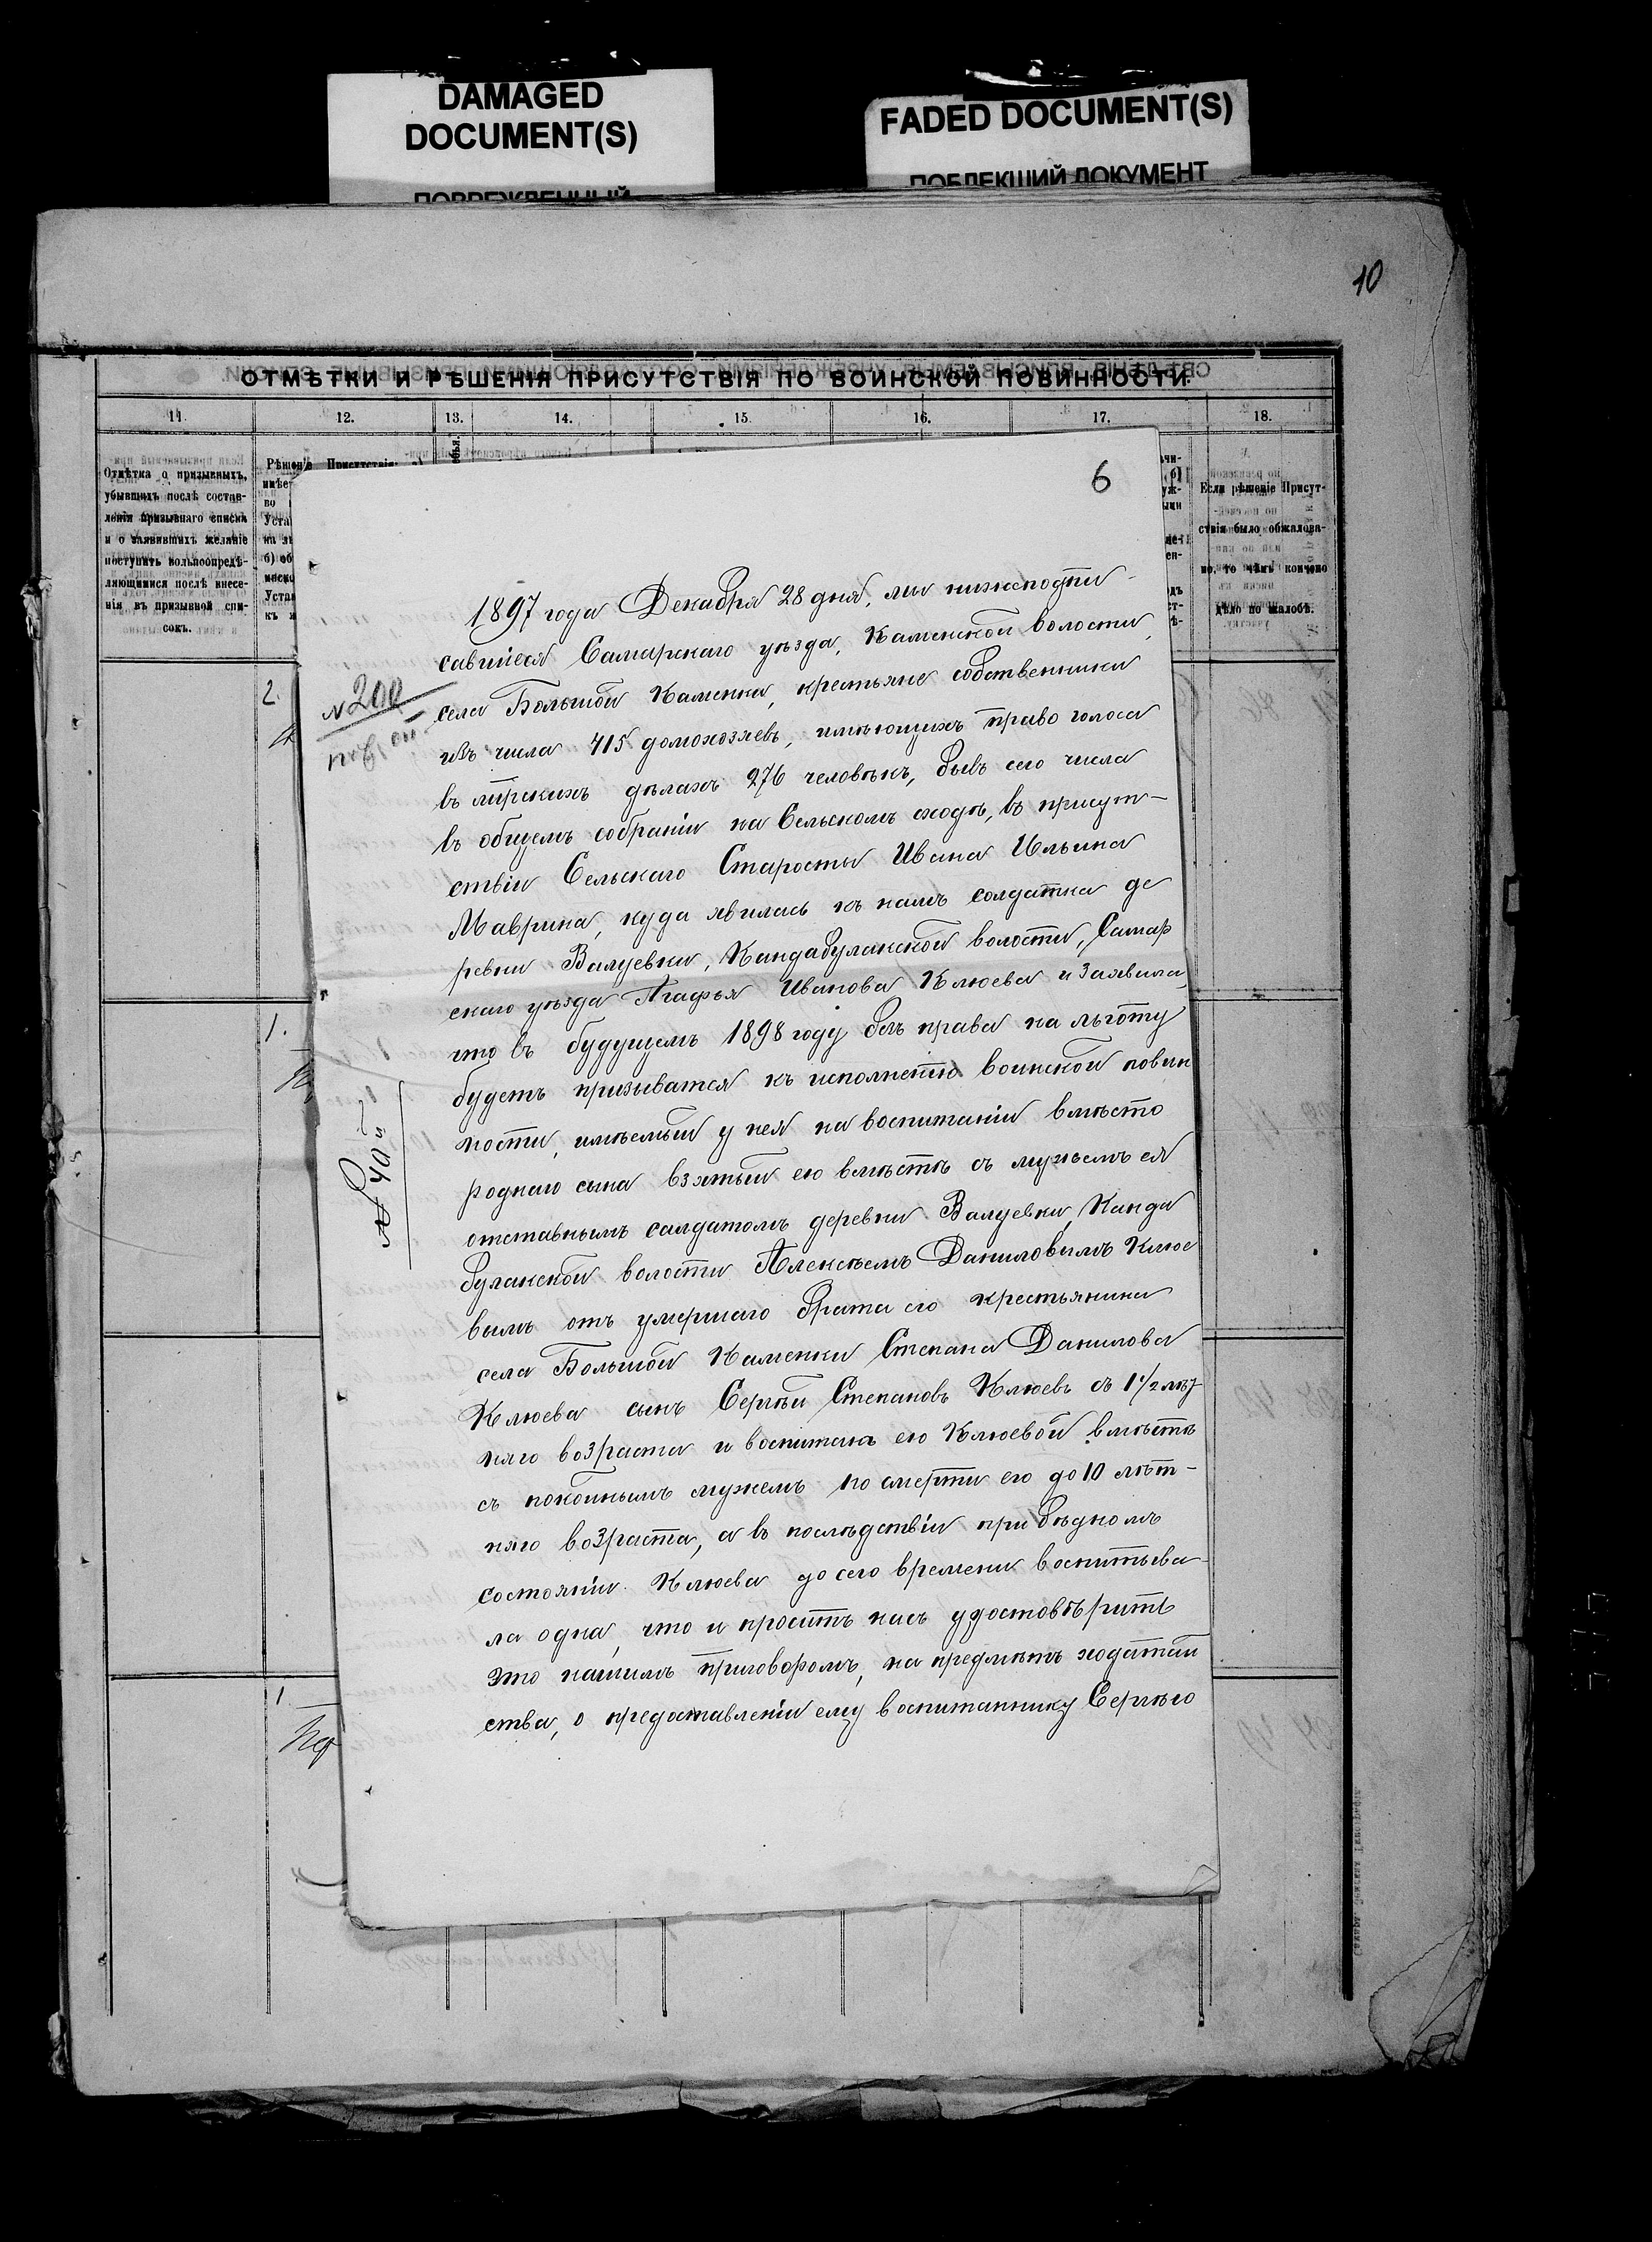 DAMAGED
DOCUMENT(S)
ПОВРЕЖДЕННЫЙ
FADED DOCUMENT(S)
ПОБЛЕКШИЙ ДОКУМЕНТ
10
ОТМѢТКИ И РѢШЕНІЯ ПРИСУТСТВІЯ ПО ВОИНСКОЙ ПОВИННОСТИ.
11. 12. 13. 14. 15. 16. 17. 18.
Отмѣтка о призывныхъ,
убывшихъ послѣ состав-
ленія призывнаго списка
и о заявившихъ желаніе
поступить вольноопредѣ-
ляющимися послѣ внесе-
нія въ призывной спи-
сокъ.
Рѣшеніе Присутствія:
Если рѣшеніе Присут-
ствія было обжалова-
но, то чѣмъ кончено
дѣло по жалобѣ.
2.
1.
1
6
№ 200
№ 40й
1897 года Декабря 28 дня, мы нижеподпи-
савшіеся Самарскаго уѣзда, Каменской волости,
села Большой Каменки, крестьяне собственники
изъ числа 415 домохозяевъ, имѣющихъ право голоса
въ мірскихъ дѣлахъ 276 человѣкъ, бывъ сего числа
въ общемъ собраніи на Сельскомъ сходѣ, въ присут-
ствіи Сельскаго Старосты Ивана Ильина
Маврина, куда явилась къ намъ солдатка де
ревни Валуевки, Кандабулакской волости, Самар
скаго уѣзда Агафья Иванова Клюева и заявила,
что въ будущемъ 1898 году безъ права на льготу
будетъ призыватся къ исполненію воинской повин
ности, имѣемый у нея на воспитаніи вмѣсто
роднаго сына взятый ею вмѣстѣ съ мужемъ ея
отставнымъ салдатомъ деревни Валуевки, Канда
булакской волости Алексѣемъ Даниловымъ Клюе
вымъ отъ умершаго брата его крестьянина
села Большой Каменки Степана Данилова
Клюева сынъ Сергѣй Степановъ Клюевъ съ 1 1/2 лѣт-
няго возраста и воспитанъ ею Клюевой вмѣстѣ
съ покойнымъ мужемъ по смерти его до 10 лѣт-
няго возраста, а въ послѣдствіи при бѣдномъ
состояніи Клюева до сего времени воспитыва-
ла одна, что и проситъ насъ удостовѣрить
это нашимъ приговоромъ, на предметъ ходатай
ства, о предоставленіи ему воспитаннику Сергѣю